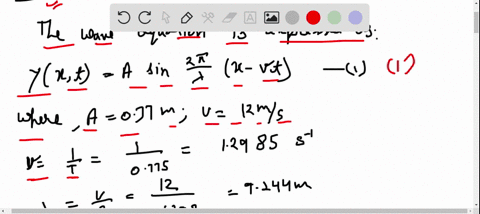 The wave equation is expressed as:
y(x,t) = A sin 2π/λ (x - vt) —(1) (1)
where, A = 0.77 m; v = 12 m/s
ν = 1/T = 1/0.775 = 1.2985 s⁻¹
= 12 = 9.244m